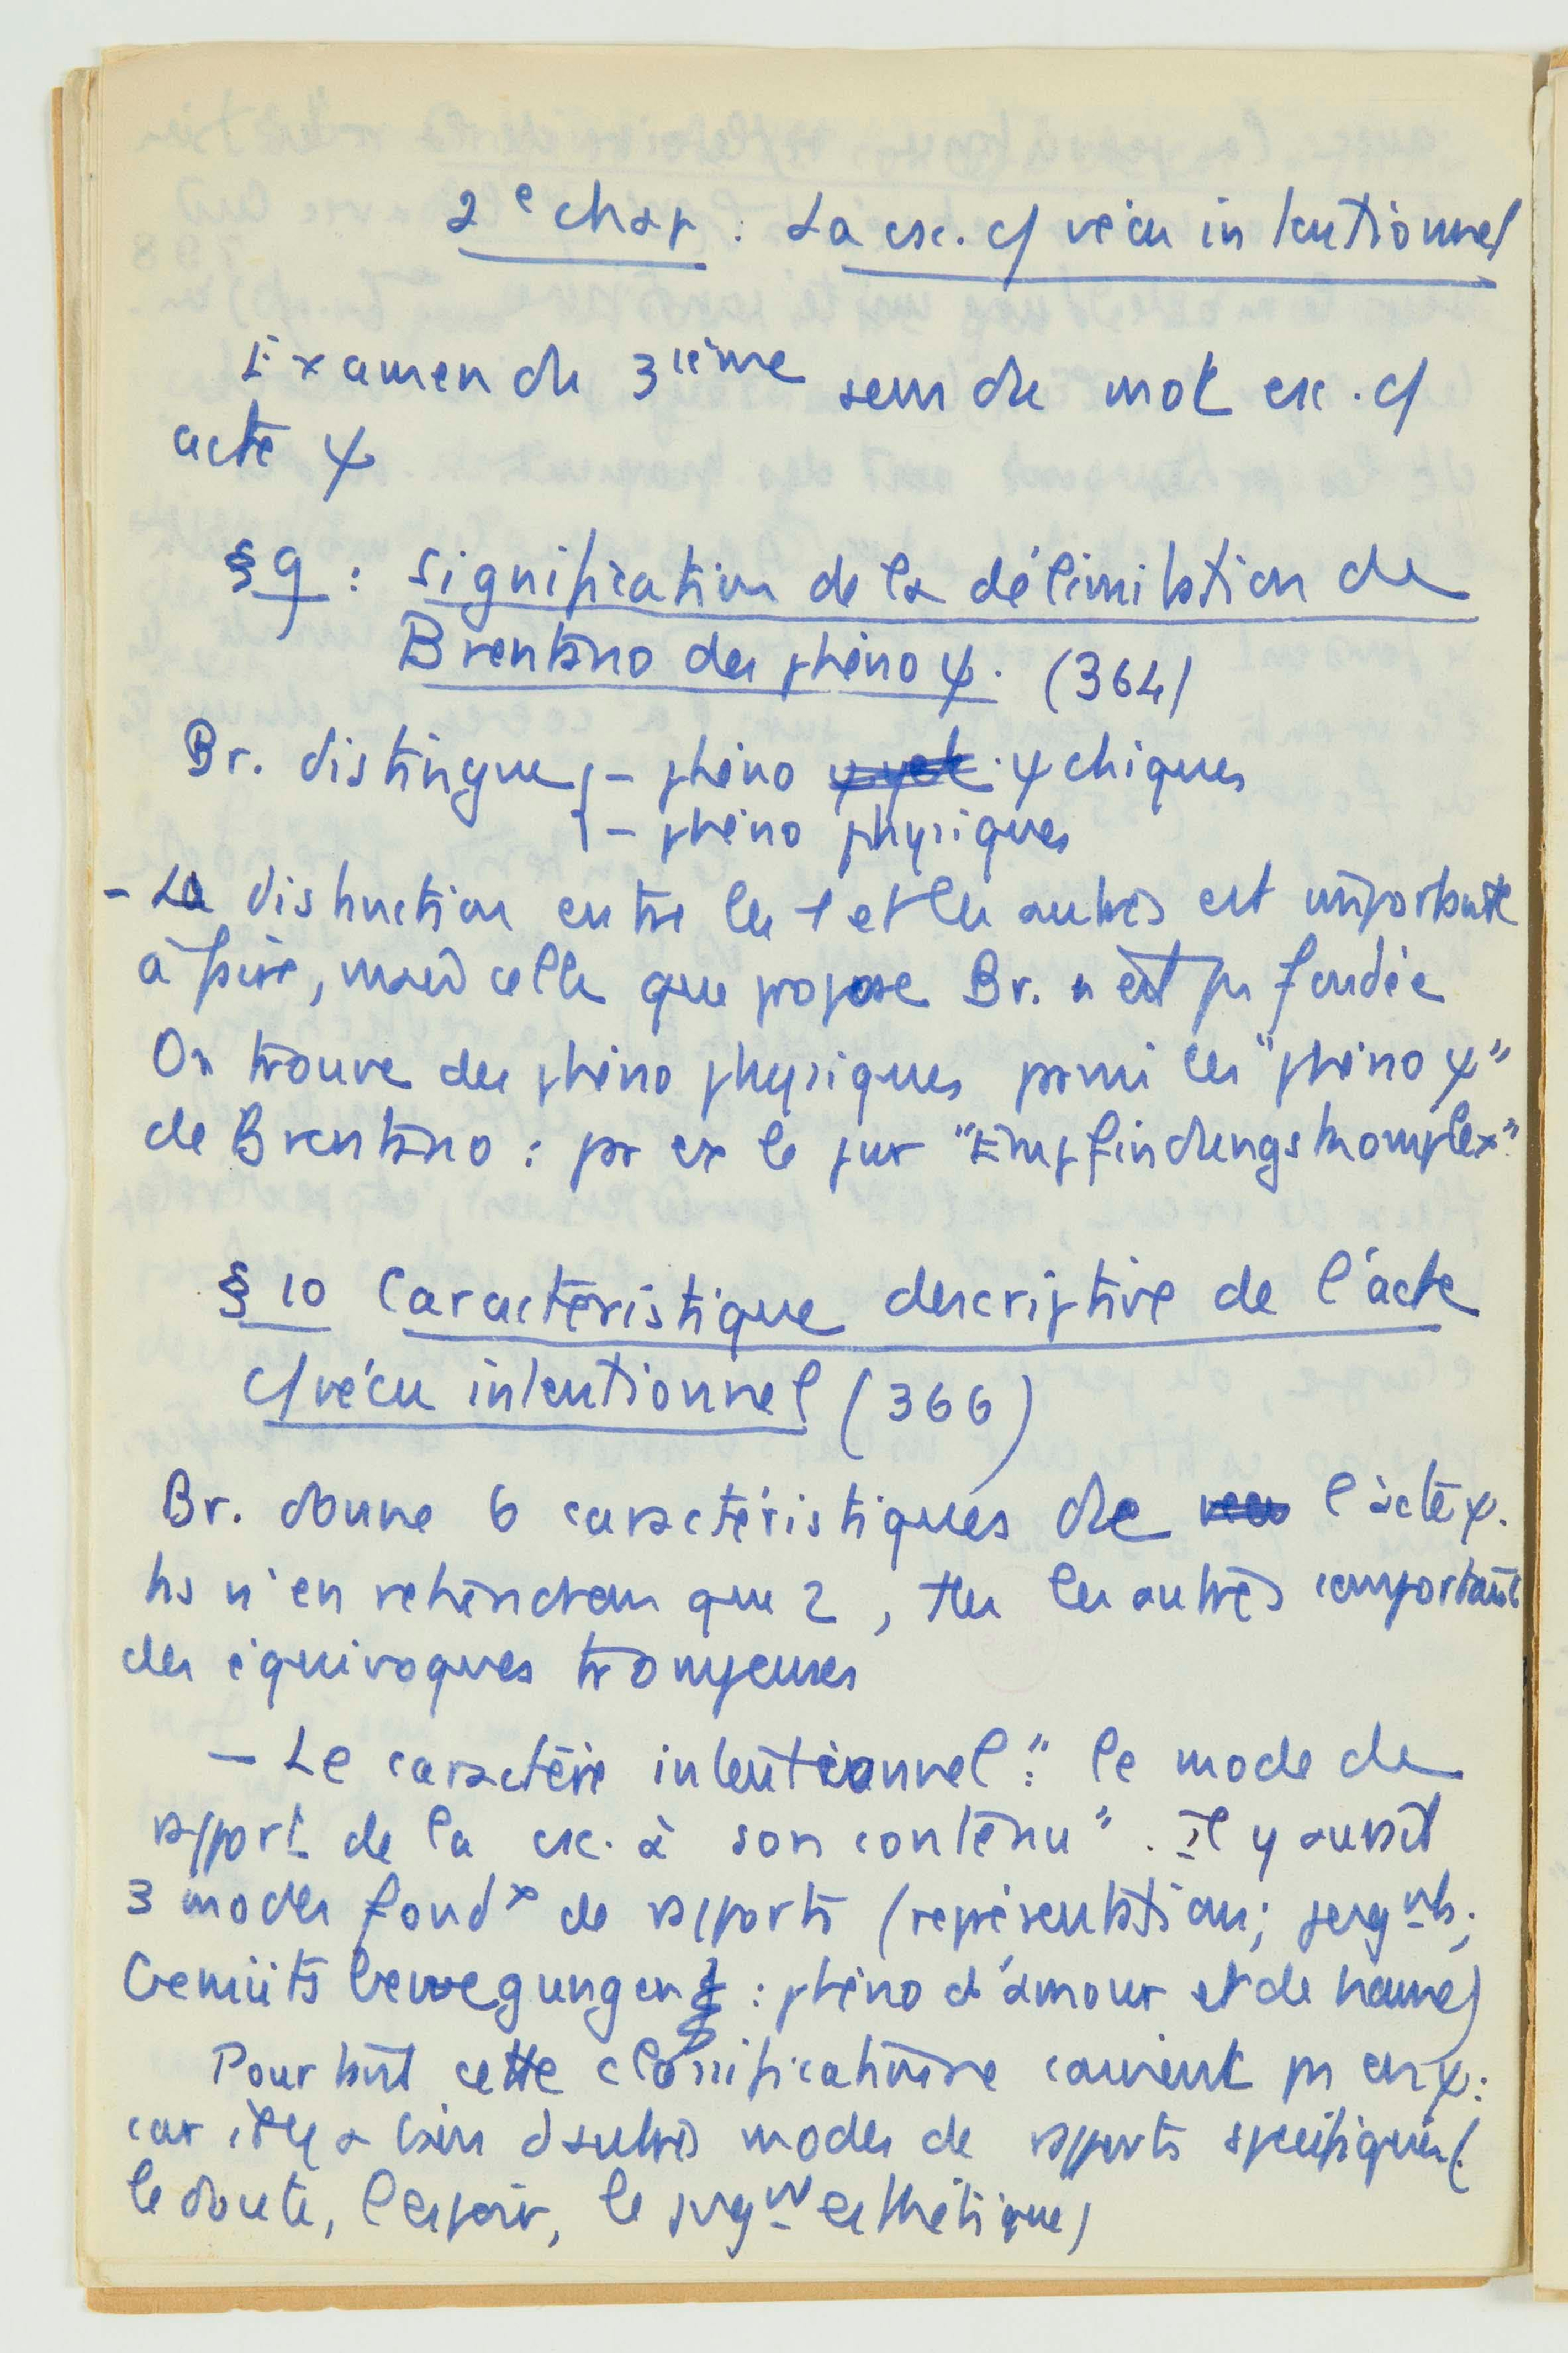 2e chap : La csc. c/ vécu intentionnel
Examen du 3ième sens du mot csc. c/
acte ψ
§ 9 : Signification de la délimitation de
Brentano des phéno ψ. (364)
Br. distingue { – phéno ψchiques
– phéno physiques
– La distinction entre les 1 et les autres est importante
à faire, mais celle que propose Br. n'est pas fondée
On trouve des phéno physiques parmi les "phéno ψ"
de Brentano : par ex le pur "Empfindungskomplex"
§ 10 Caractéristique descriptive de l'acte
c/ vécu intentionnel (366)
Br. donne 6 caractéristiques de l'acte ψ.
Ns n'en retiendrons que 2, ttes les autres comportant
des équivoques trompeuses
– Le caractère intentionnel : "le mode de
rapport de la csc. à son contenu". Il y aurait
3 modes fondx de rapports (représentation ; jugmts ;
Gemütsbewegungen : phéno d'amour et de haine)
Pourtant cette classificatoire convient pas en ψ :
car il y a bien d'autres modes de rapports spécifiques (
le doute, l'espoir, le jugmt esthétique)